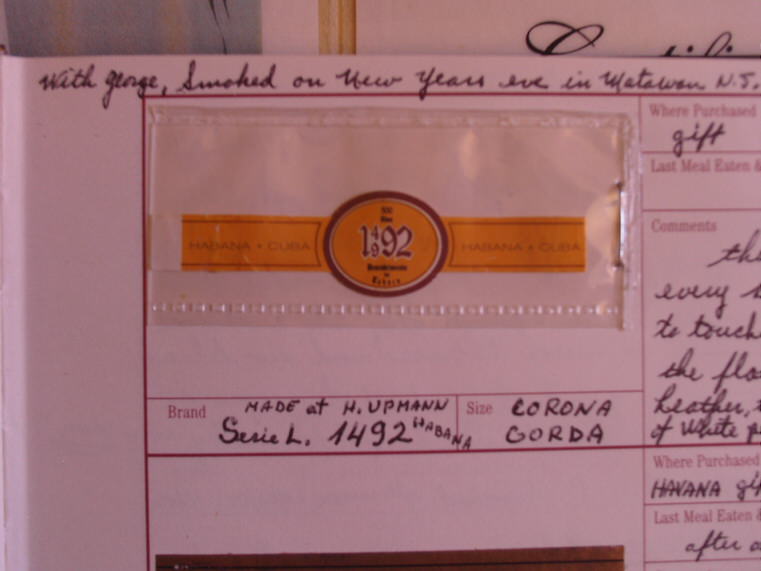 With george, Smoked on New Years eve in Matawan N.J.
Where Purchased
gift
Last Meal Eaten &
500
Años
1492
HABANA • CUBA
HABANA • CUBA
Descubrimiento
Tabaco
Comments
the
every
to touch
the flo
leather,
of white p
Brand
MADE at H. UPMANN
Serie L. 1492 HABANA
Size
CORONA
GORDA
Where Purchased
HAVANA gif
Last Meal Eaten &
after a